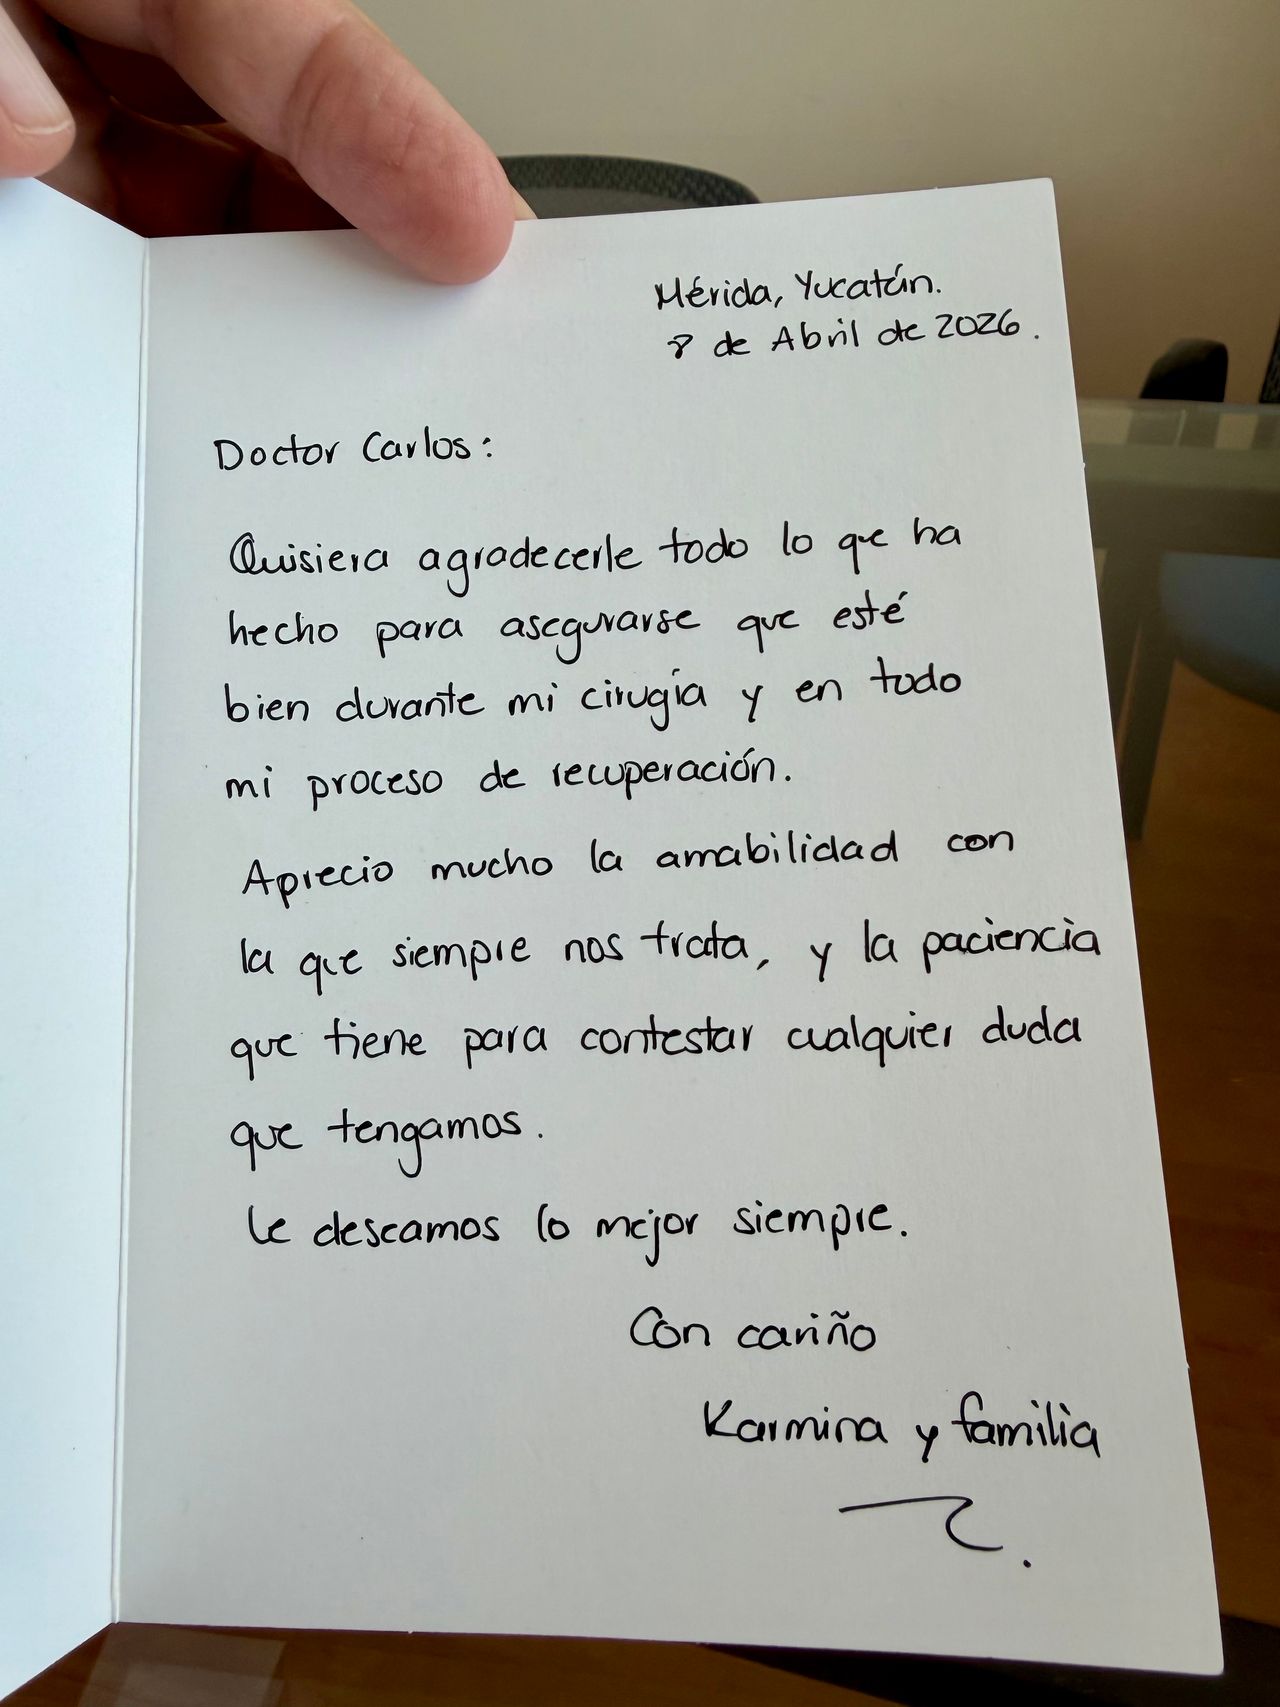 Mérida, Yucatán.
8 de Abril de 2026.
Doctor Carlos:
Quisiera agradecerle todo lo que ha
hecho para asegurarse que esté
bien durante mi cirugía y en todo
mi proceso de recuperación.
Aprecio mucho la amabilidad con
la que siempre nos trata, y la paciencia
que tiene para contestar cualquier duda
que tengamos.
Le deseamos lo mejor siempre.
Con cariño
Karmina y familia